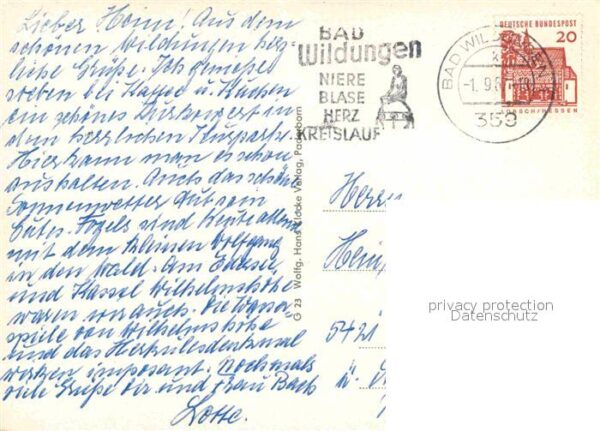 Lieber Heini! Aus dem
schönen Wildungen herz-
liche Grüße. Ich genieße
soeben bei Kaffee u. Kuchen
ein schönes Kurkonzert in
dem herrlichen Kurpark.
Hier kann man es schon
aushalten. Auch das schöne
Sonnenwetter tut sein
Gutes. Vogels sind heute allein
mit dem kleinen Wolfgang
in den Wald. Am Edersee
und Kassel Wilhelmshöhe
waren wir auch. Die Wasser-
spiele von Wilhelmshöhe
und das Herkulesdenkmal
wirken imposant. Nochmals
viele Grüße Dir und Frau Bach
Lotte.
BAD
Wildungen
NIERE
BLASE
HERZ
KREISLAUF
BAD WILDUNGEN
-1.9.6
359
DEUTSCHE BUNDESPOST
20
LORSCH/HESSEN
G 23 Wolfg. Hans Klocke Verlag, Paderborn
Herrn
Hein
5421
privacy protection
Datenschutz